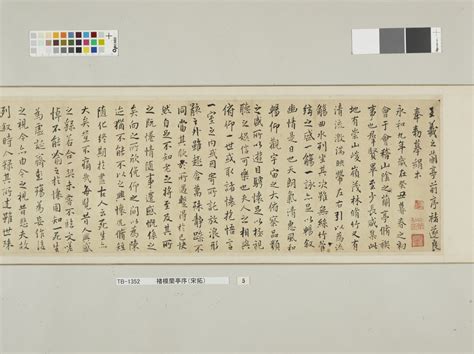 王羲之蘭亭前序褚遂良
奉勅摹
永和九年歲在癸丑暮春之初
會于會稽山陰之蘭亭脩禊
事也羣賢畢至少長咸集此
地有崇山峻領茂林脩竹又有
清流激湍映帶左右引以為流
觴曲水列坐其次雖無絲竹管
弦之盛一觴一詠亦足以暢敘
幽情是日也天朗氣清惠風和
暢仰觀宇宙之大俯察品類
之盛所以遊目騁懷足以極視
聽之娛信可樂也夫人之相與
俯仰一世或取諸懷抱悟言
一室之內或因寄所託放浪形
骸之外雖趣舍萬殊靜躁不
同當其欣於所遇暫得於己怏
然自足不知老之將至及其所
之既惓情隨事遷感慨係之
矣向之所欣俛仰之間以為陳
迹猶不能不以之興懷況脩短
隨化終期於盡古人云死生亦
大矣豈不痛哉每攬昔人興感
之由若合一契未嘗不臨文嗟
悼不能喻之於懷固知一死生
為虛誕齊彭殤為妄作後
之視今亦由今之視昔悲夫故
列敘時人錄其所述雖世殊
TB-1352 褚模蘭亭序(宋拓)
3